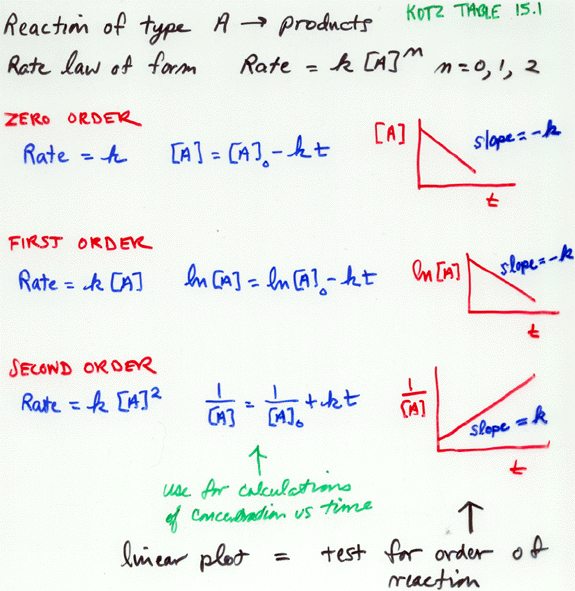 KOTZ TABLE 15.1
Reaction of type A → products
Rate law of form Rate = k [A]^m n = 0, 1, 2
ZERO ORDER
Rate = k [A] = [A]₀ - kt
[A] slope = -k
t
FIRST ORDER
Rate = k [A] ln [A] = ln [A]₀ - kt
ln [A] slope = -k
t
SECOND ORDER
Rate = k [A]² 1/[A] = 1/[A]₀ + kt
1/[A] slope = k
t
↑
use for calculations
of concentration vs time
↑
linear plot = test for order of
reaction